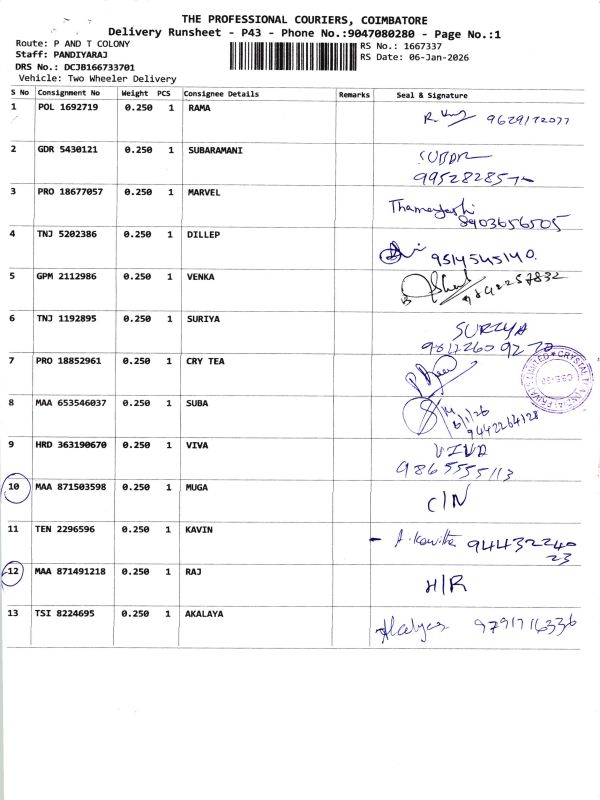 THE PROFESSIONAL COURIERS, COIMBATORE
Delivery Runsheet - P43 - Phone No.:9047080280 - Page No.:1
Route: P AND T COLONY
Staff: PANDIYARAJ
DRS No.: DCJB166733701
Vehicle: Two Wheeler Delivery
RS No.: 1667337
RS Date: 06-Jan-2026
S No Consignment No Weight PCS Consignee Details Remarks Seal & Signature
1 POL 1692719 0.250 1 RAMA 9629172077
2 GDR 5430121 0.250 1 SUBARAMANI
3 PRO 18677057 0.250 1 MARVEL
8903656505
4 TNJ 5202386 0.250 1 DILLEP 9514545140.
5 GPM 2112986 0.250 1 VENKA
6 TNJ 1192895 0.250 1 SURIYA SURIYA
7 PRO 18852961 0.250 1 CRY TEA
8 MAA 653546037 0.250 1 SUBA
6/1/26
9442264128
9 HRD 363190670 0.250 1 VIVA VIVA
9865555113
10 MAA 871503598 0.250 1 MUGA C/N
11 TEN 2296596 0.250 1 KAVIN A. Kavitha 94432240
23
12 MAA 871491218 0.250 1 RAJ H/R
13 TSI 8224695 0.250 1 AKALAYA 9791716336